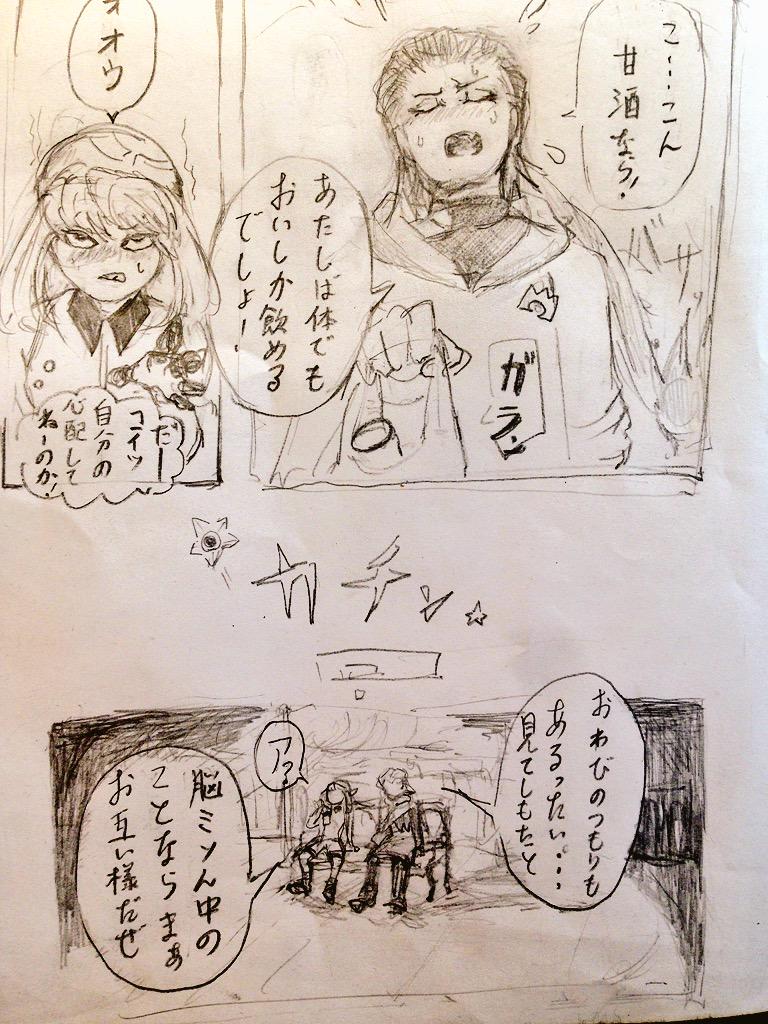 こ・・・こん
甘酒なら!
バサッ
あたしば体でも
おいしか飲める
でしょー!
ガラン
オオウ
だー
コイツ
自分の
心配して
ねーのか!
カチン
おわびのつもりも
あるったい・・・
見てしもたと
ア?
脳ミソん中の
ことならまぁ
お互い様だぜ